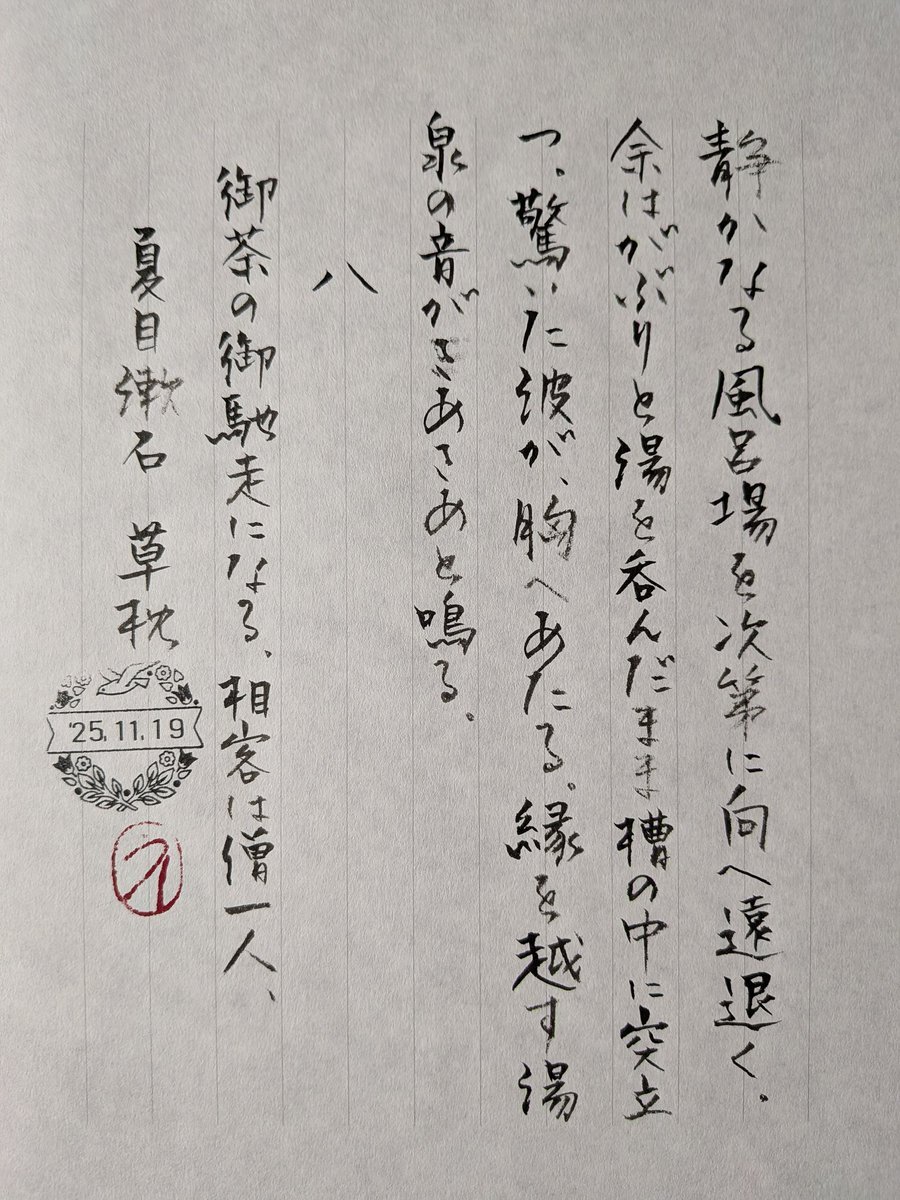 静かなる風呂場を次第に向へ遠退く。
余はがぶりと湯を呑んだまま槽の中に突立
つ。驚いた波が、胸へあたる。縁を越す湯
泉の音がさあさあと鳴る。
八
御茶の御馳走になる、相客は僧一人、
夏目漱石 草枕
'25.11.19